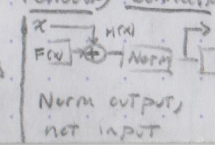 x
H(x)
F(x) + Norm
Norm output,
not input